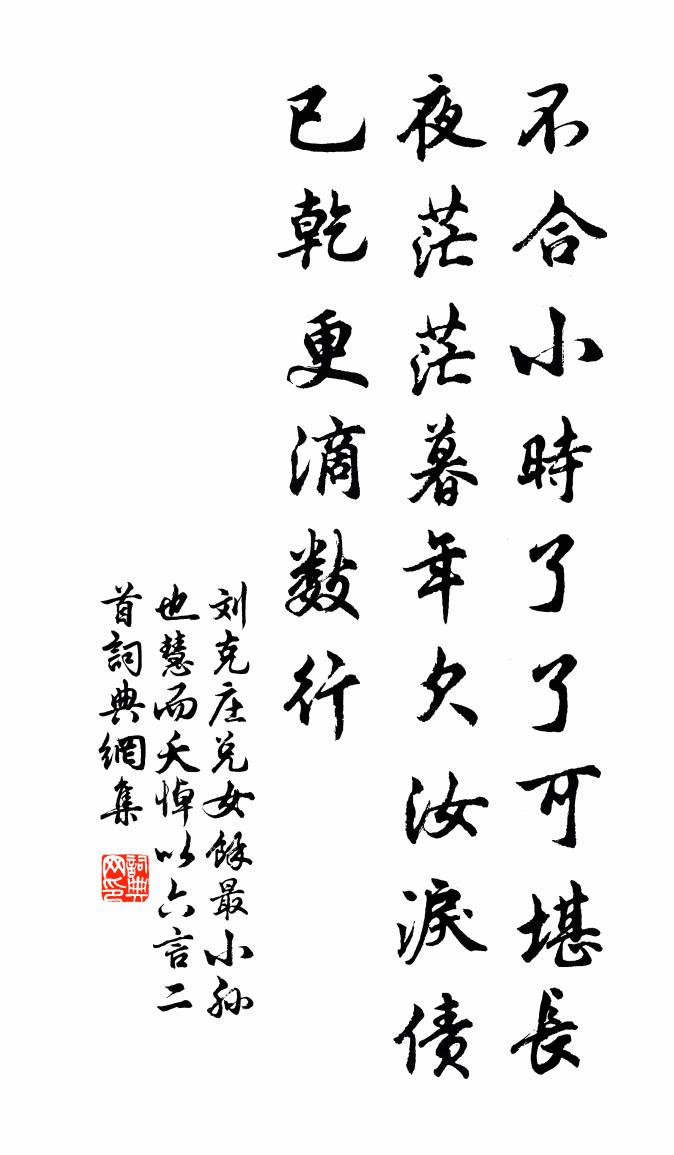 不合小時了了可堪長
夜茫茫暮年欠汝淚债
已乾更滴数行
刘克庄兑女餘最小孙
也慧而夭悼以六言二
首詞典網集
詞典
网印